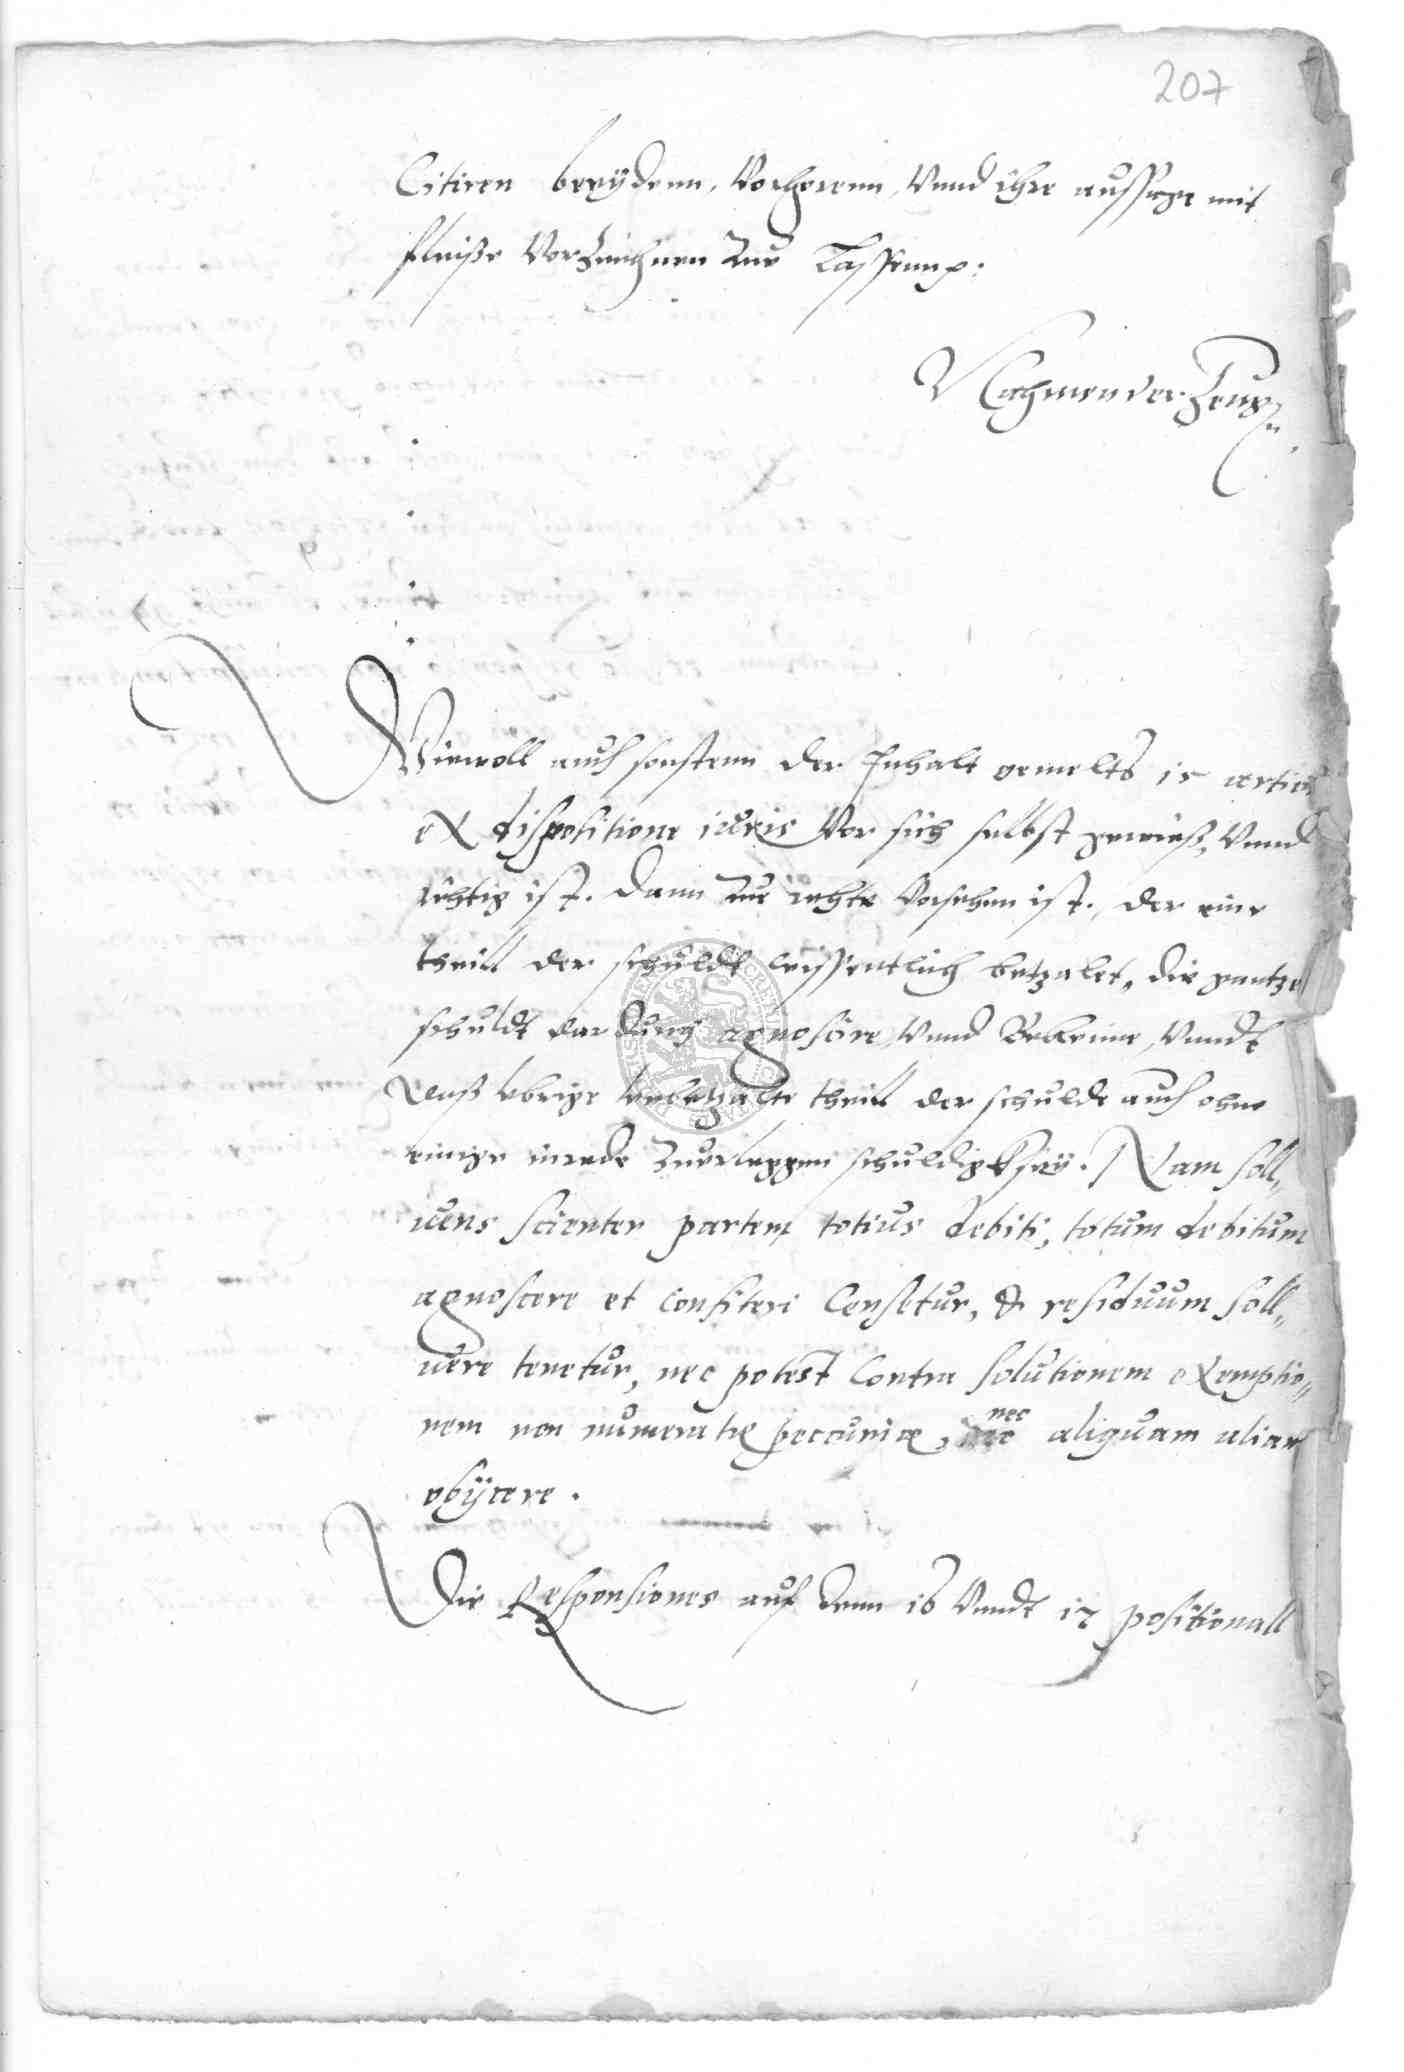 207
Citiren beeydenn, Vorhorenn, Vnnd ihre aussage mit
fleiße Vorzeichnen Zue Lassenn
Nahmen der Zeug
Wiewoll auch sonstenn der Inhalt gemelts 15 articŭl
ex dispositione iuris Vor sich selbst gewiß, Vnnd
richtig ist. Dann Zue rechte Vorsehen ist, der eine
theill der schuldt wissentlich betzalet, die gantze
schuldt dardurch agnoscire Vnnd Bekenne, Vnndt
daß vbrige vnbetzalte theill der schulde auch ohne
einige inrede Zuerleggen schuldig sey. Nam soll„
uens scienter partem totius debiti, totum debitum
agnoscere et confiteri Censetur, & residuum soll„
uere tenetur, nec potest Contra solutionem exemptio„
nem non numeratæ peccuniæ, nec aliquam aliam
obÿcere.
Die Responsiones auf denn 16 Vnndt 17 positionall